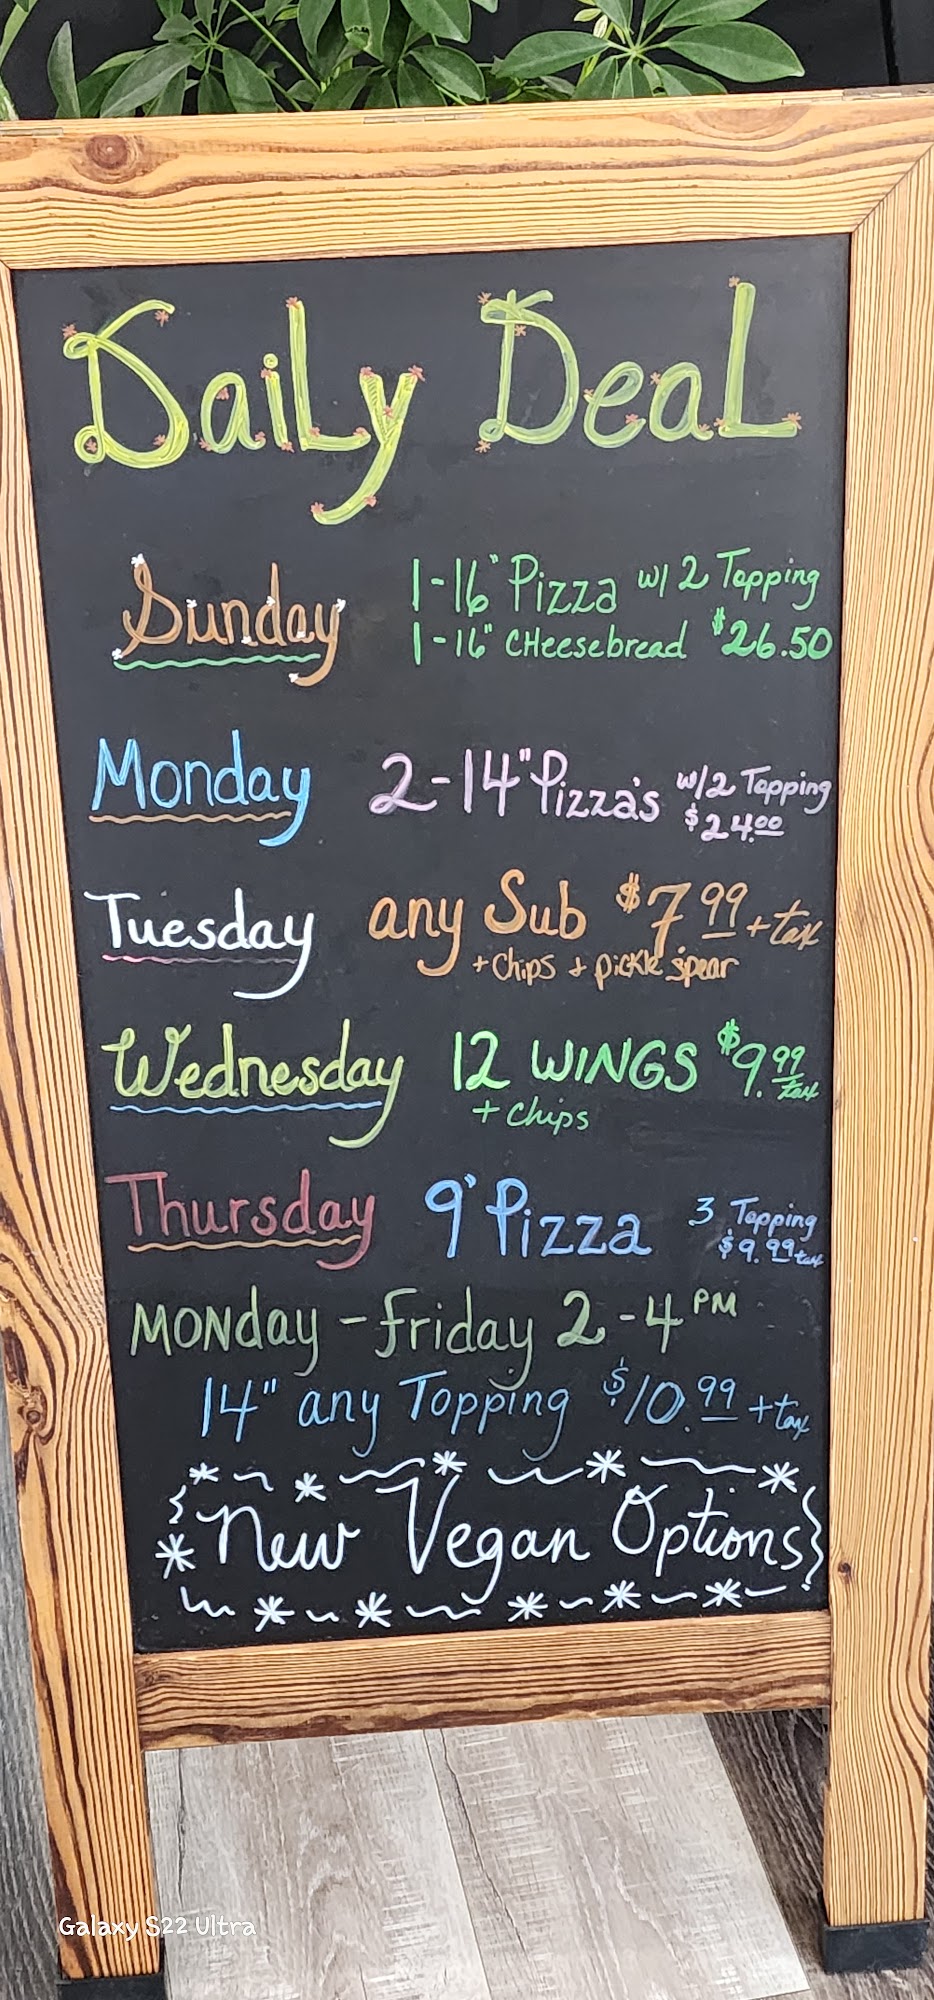 Daily Deal
Sunday 1-16" Pizza w/ 2 Topping
1-16" CHeesebread $26.50
Monday 2-14" Pizza's w/2 Topping
$24.00
Tuesday any Sub $7.99 + tax
+ Chips + pickle spear
Wednesday 12 WINGS $9.99 tax
+ Chips
Thursday 9" Pizza 3 Topping
$9.99 tax
MONday - Friday 2-4 PM
14" any Topping $10.99 + tax
New Vegan Options
Galaxy S22 Ultra